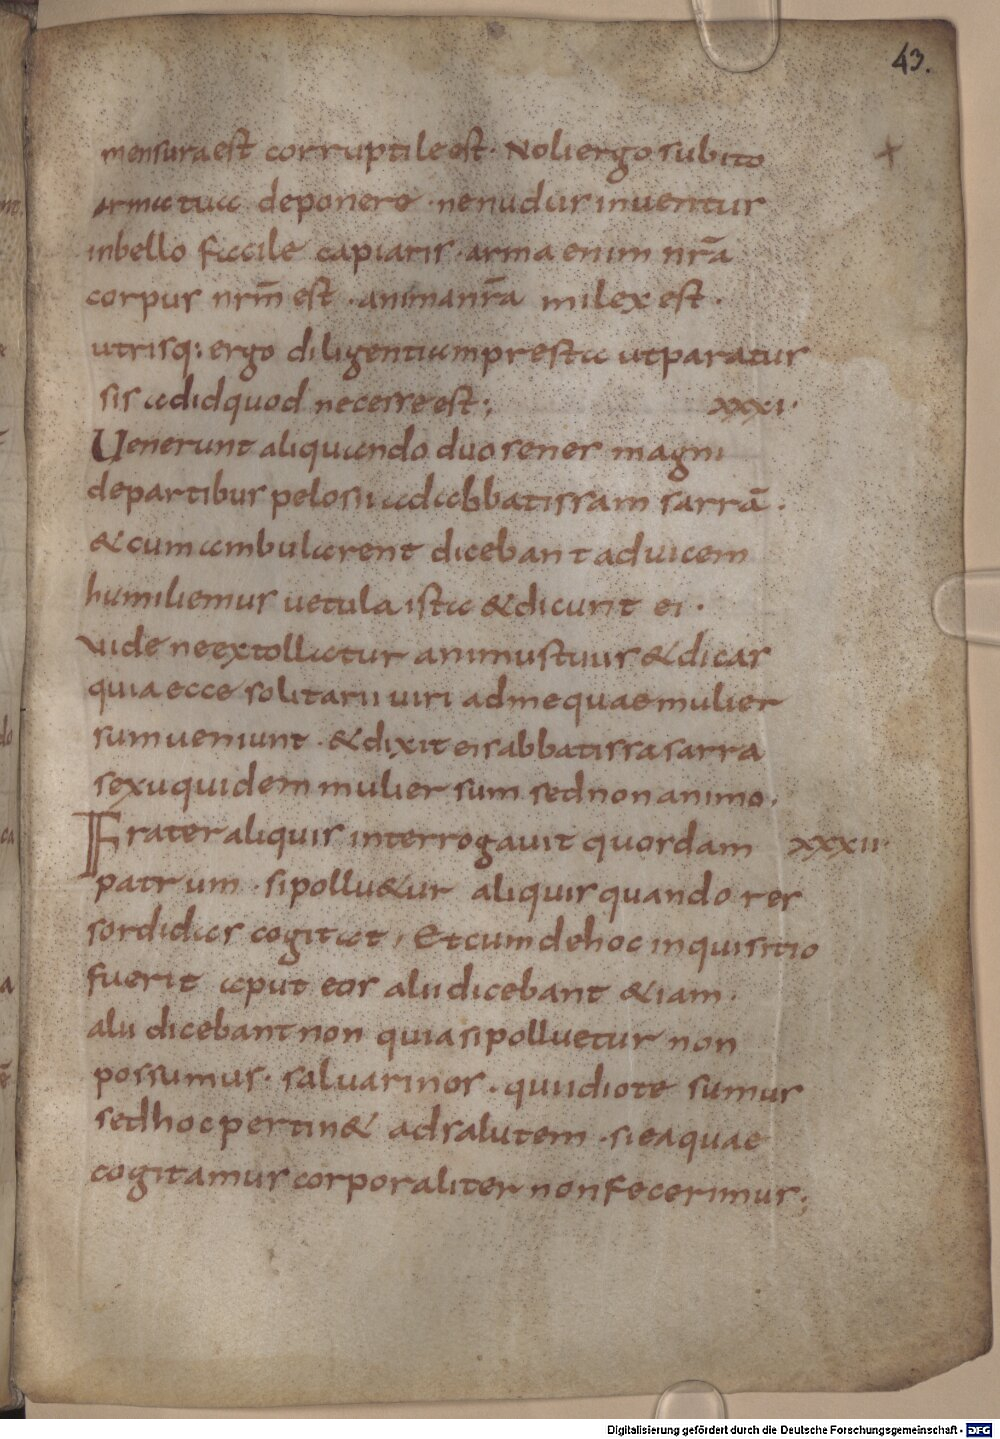 43.
mensura est corruptile est · Noli ergo subito
arma tua deponere · ne nudus inventus
in bello facile capiaris · arma enim nr̄a
corpus nrm̄ est · anima nr̄a milex est ·
utrisq: ergo diligentiam presta ut paratus
sis ad id quod necesse est ; xxxi·
Uenerunt aliquando duo senes magni
de partibus pelosii ad abbatissam sarrā ·
& cum ambularent dicebant ad uicem
humiliemus uetula ista & dicunt ei ·
uide ne extollatur animus tuus & dicas
quia ecce solitarii uiri ad me quae mulier
sum ueniunt · & dixit eis abbatissa sarra
sexu quidem mulier sum sed non animo ·
Frater aliquis interrogauit quosdam xxxii·
patrum · si pollu&ur aliquis quando res
sordidas cogitat , Et cum de hoc inquisitio
fuerit aput eos alii dicebant &iam ·
alii dicebant non quia si polluetur non
possumus · saluari nos · qui idiote sumus
sed hoc pertin& ad salutem · si ea quae
cogitamus corporaliter non fecerimus ;
Digitalisierung gefördert durch die Deutsche Forschungsgemeinschaft - DFG